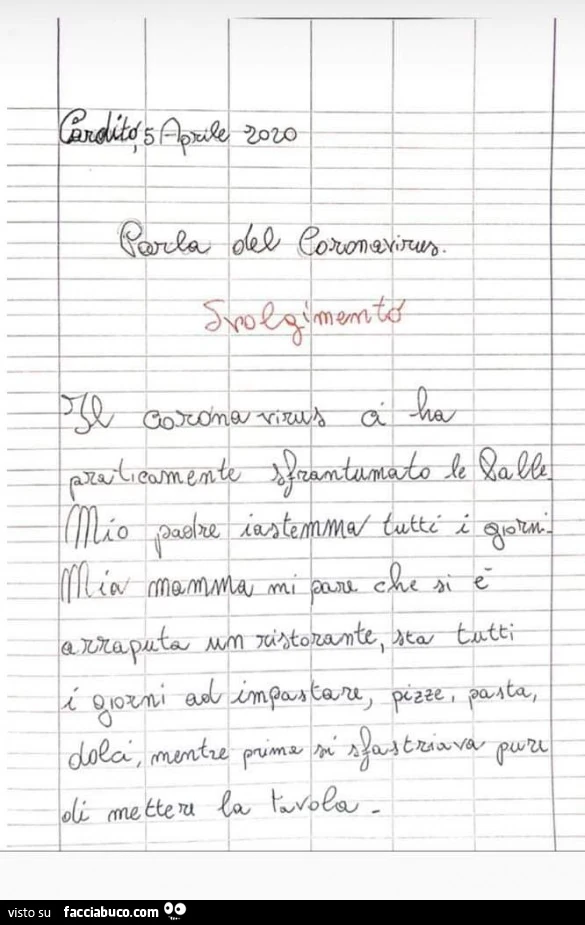 Cardito, 5 Aprile 2020
Parla del Coronavirus.
Svolgimento
Il coronavirus ci ha
praticamente sfrantumato le Palle.
Mio padre iastemma tutti i giorni.
Mia mamma mi pare che si è
arraputa un ristorante, sta tutti
i giorni ad impastare, pizze, pasta,
dolci, mentre prima si sfastriava pure
di mettere la tavola.
visto su facciabuco.com